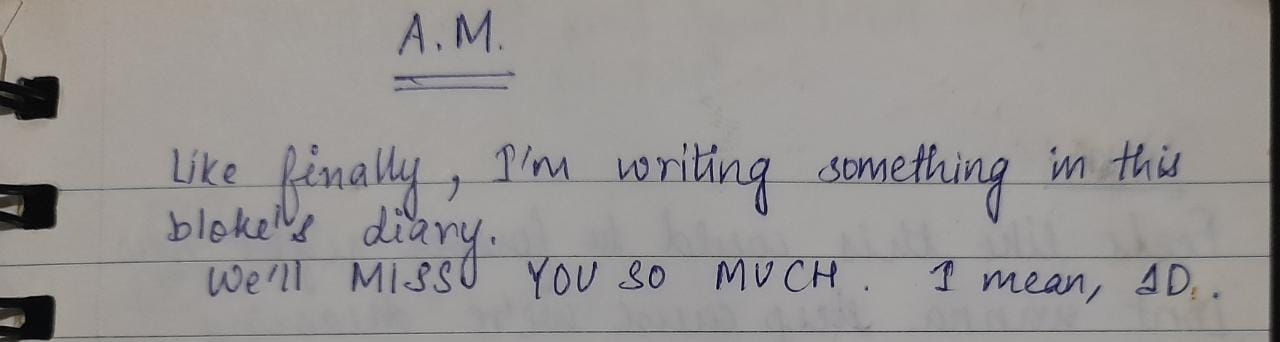 A.M.
Like finally, I'm writing something in this
bloke's diary.
We'll MISS YOU SO MUCH. I mean, 1D..